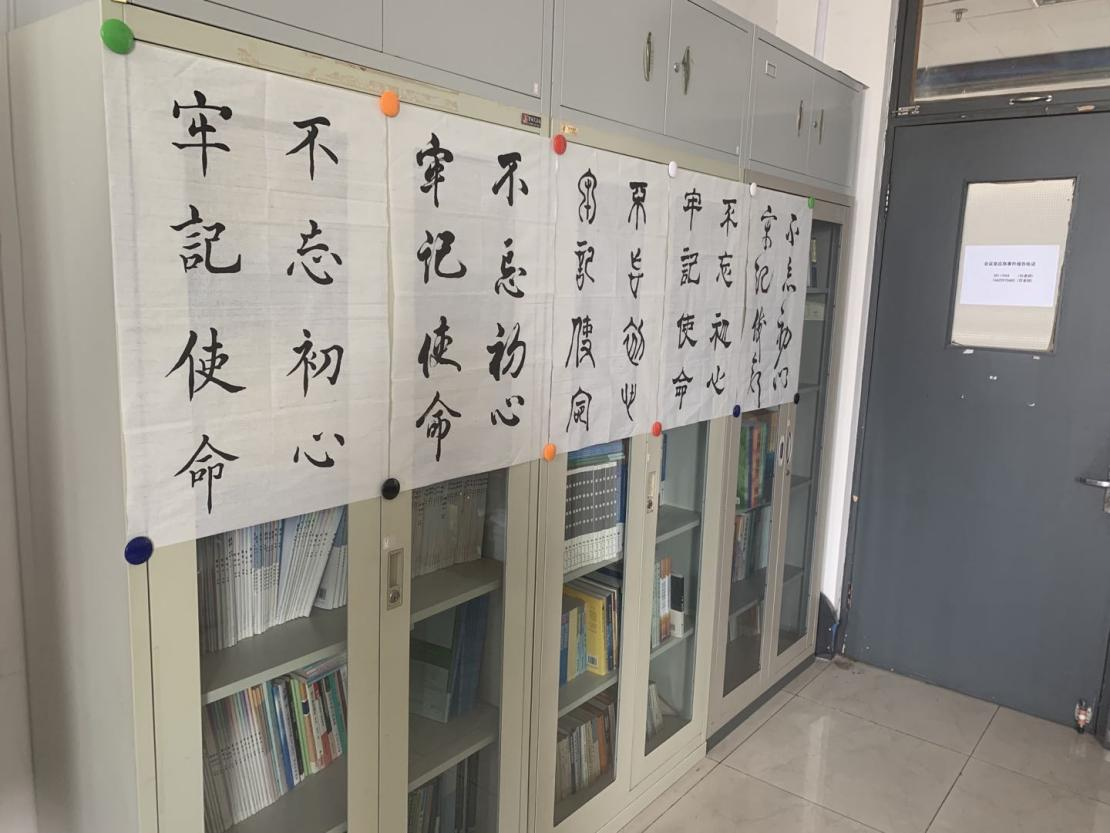 不忘初心
牢記使命
不忘初心
牢记使命
不忘初心
牢記使命
不忘初心
牢記使命
不忘初心
牢记使命